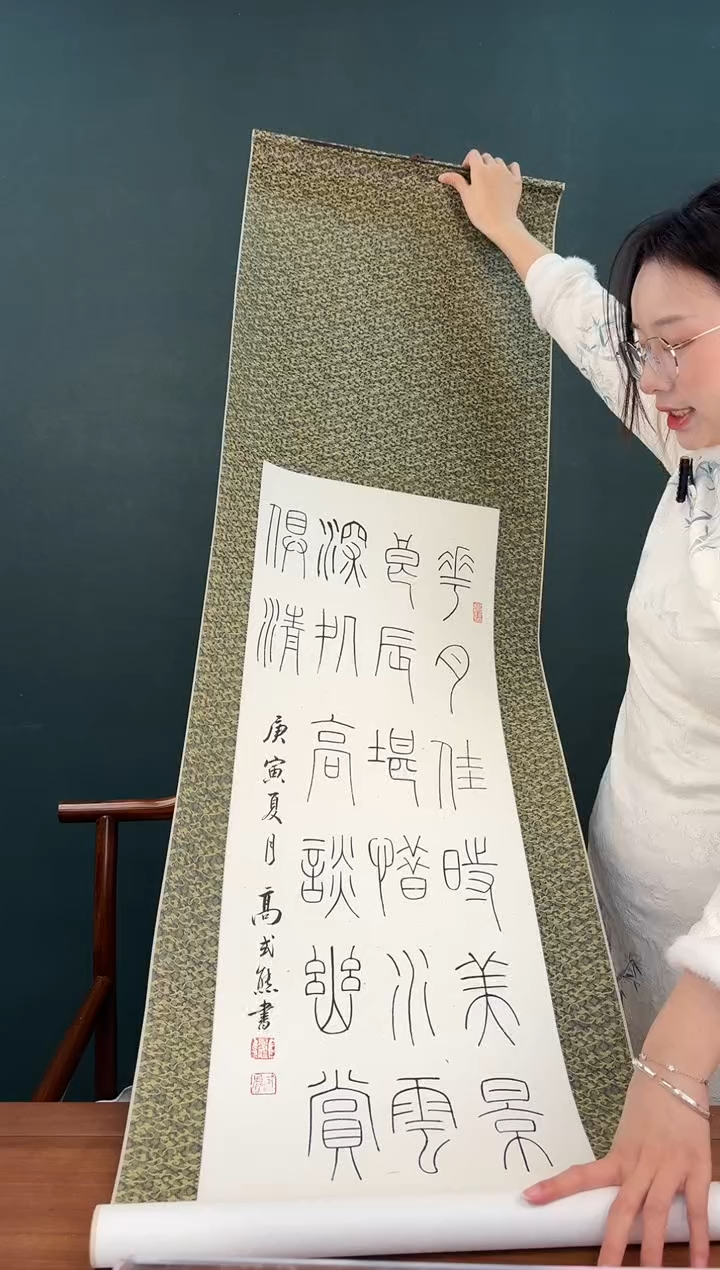 華月佳時美景
良辰堪惜水雲
深処高談幽賞
俱清
庚寅夏月高式熊書